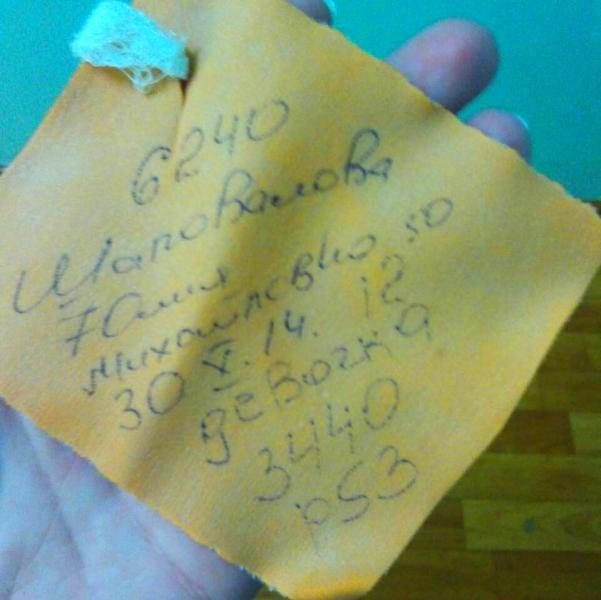 6240
Шаповалова
Юлия
Михайловна 50
30 XI. 14. 12
девочка
3440
р53